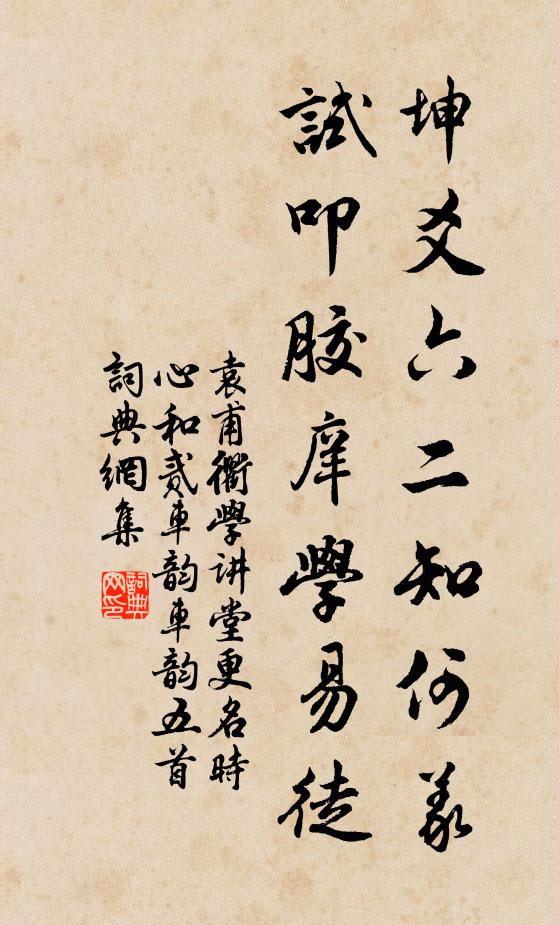 坤爻六二知何義
試叩膠庠學易徒
袁甫衢學讲堂更名時
心和贰車韵車韵五首
詞典網集
詞典网印